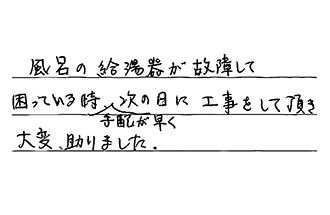 風呂の給湯器が故障して
困っている時、次の日に工事をして頂き
手配が早く
大変、助りました。